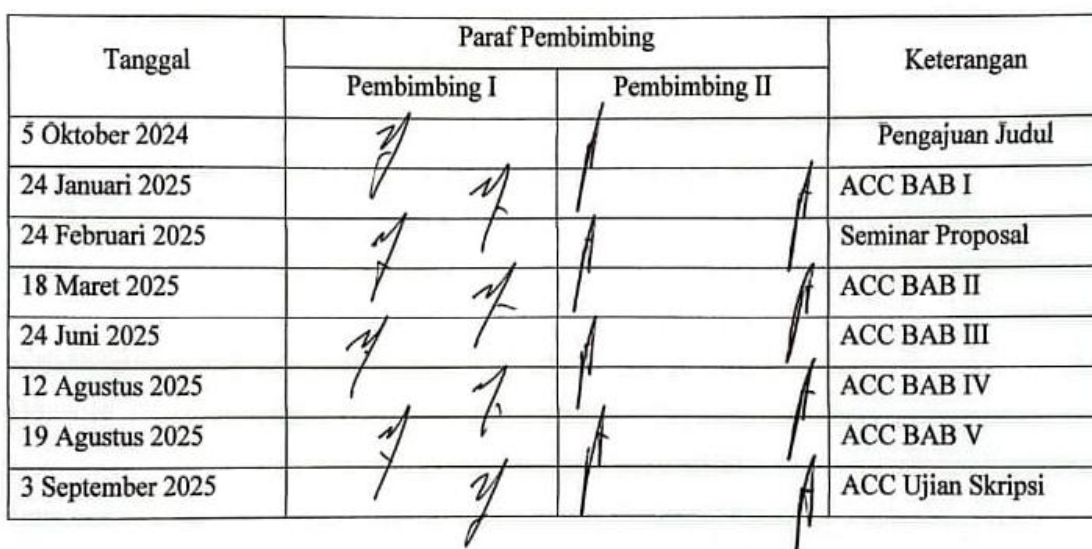 Tanggal
Paraf Pembimbing
Keterangan
Pembimbing I
Pembimbing II
5 Oktober 2024
Pengajuan Judul
24 Januari 2025
ACC BAB I
24 Februari 2025
Seminar Proposal
18 Maret 2025
ACC BAB II
24 Juni 2025
ACC BAB III
12 Agustus 2025
ACC BAB IV
19 Agustus 2025
ACC BAB V
3 September 2025
ACC Ujian Skripsi